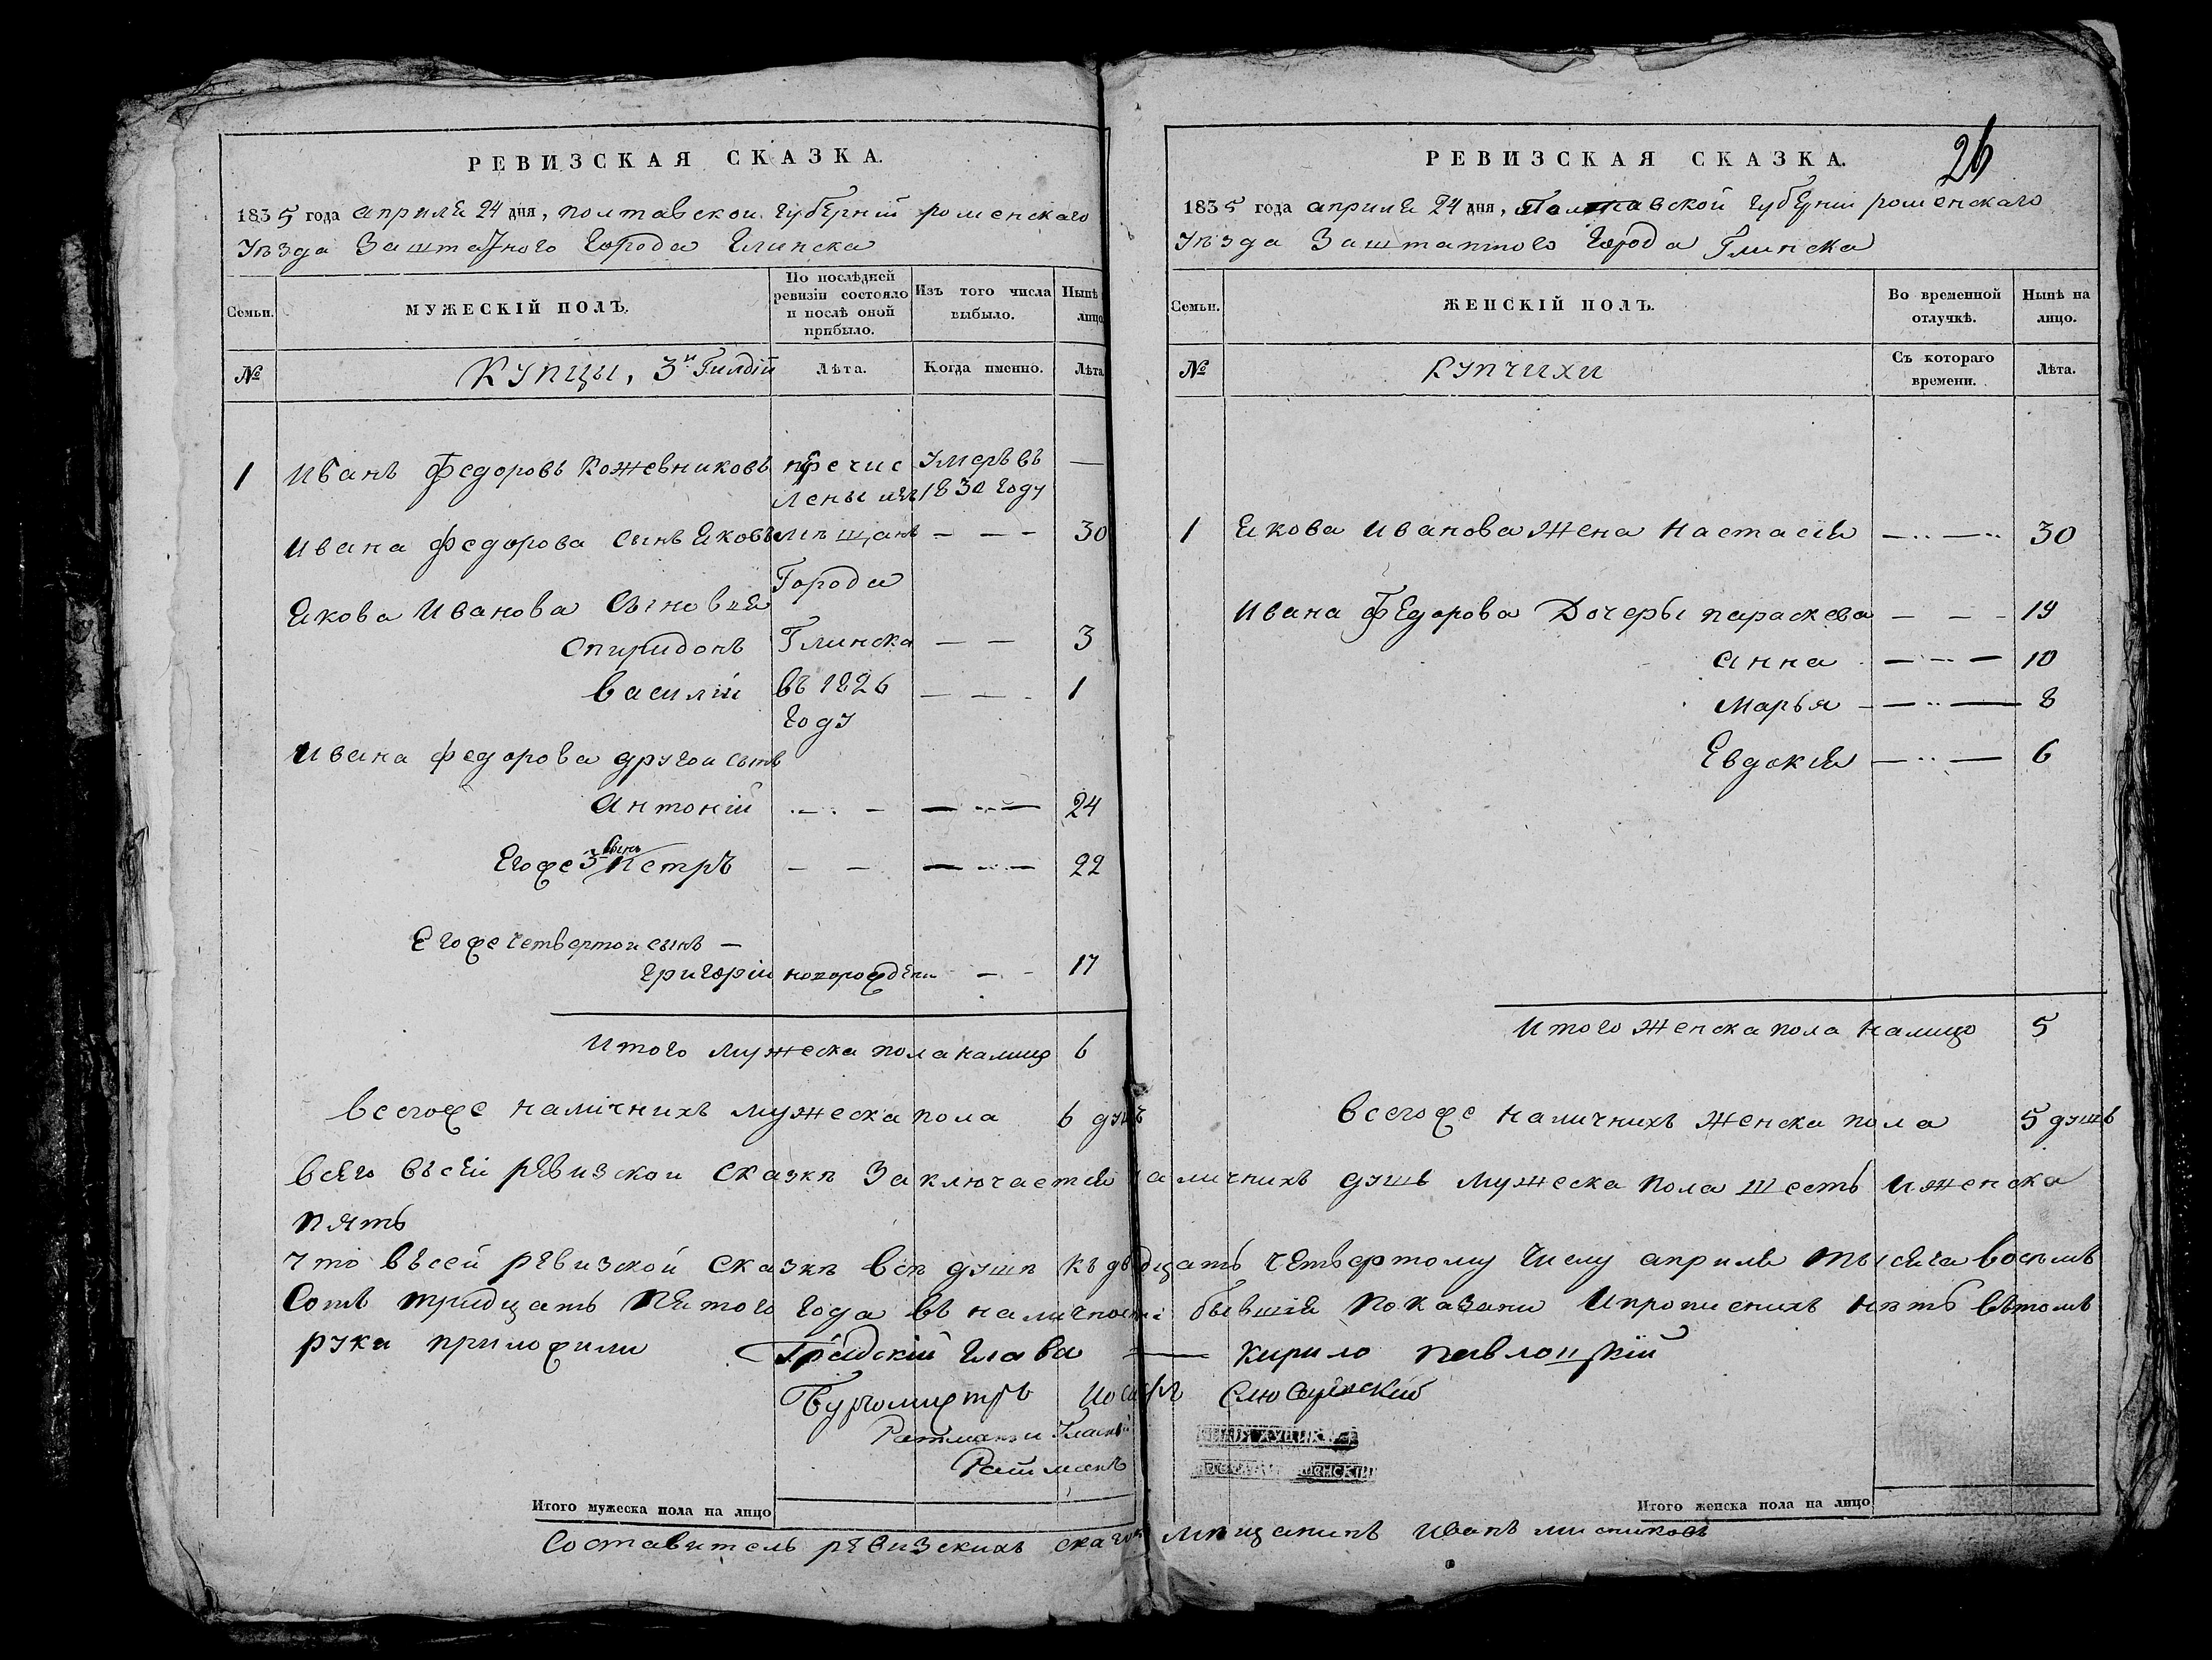 РЕВИЗСКАЯ СКАЗКА.
1835 года апреля 24 дня, полтавской губерній роменскаго
уѣзда Заштатного Города Глинска
Семьи.
МУЖЕСКІЙ ПОЛЪ.
По послѣдней ревизіи состояло и послѣ оной прибыло.
Изъ того числа выбыло.
Нынѣ лицо
№
Купцы, 3й Гилдій
Лѣта.
Когда именно.
Лѣта
1 Иванъ Федоровъ Кожевниковъ пречис умеръ въ —
лены изъ 1830 году
Ивана Федорова сынъ Яковъ мѣщанъ — — — 30
Города
Якова Иванова Сыновья
Спиридонъ Глинска — — 3
Василій въ 1826 — — 1
Году
Ивана Федорова другой сынъ
Антоній — — 24
Егоже 3 сынъ Петръ — — 22
Егоже четвертой сынъ —
Григорій новорожденн — — 17
Итого мужеска пола налицо 6
Всегоже наличнихъ мужеска пола 6 душъ
РЕВИЗСКАЯ СКАЗКА.
26
1835 года апреля 24 дня, Полтавской губерніи роменскаго
уѣзда Заштатного Города Глинска
Семьи.
ЖЕНСКІЙ ПОЛЪ.
Во временной отлучкѣ.
Нынѣ на лицо.
№
Купчихи
Съ котораго времени.
Лѣта.
1 Якова Иванова Жена Настасія — — 30
Ивана Федорова Дочеры Параскева — — — 14
Анна — — 10
Марья — — 8
Евдокія — — 6
Итого Женска пола налицо 5
Всегоже наличнихъ Женска пола 5 душъ
Всего въсей ревизской сказкѣ Заключается наличнихъ душъ мужеска пола шесть иженска
пять
что въсей ревизской сказкѣ всѣ душѣ къ двадцать четвертому числу апреля тысяча восѣмъ
сотъ тридцать пятого года въ наличности бывшія показани ипрописнихъ нѣтъ вътомъ
руки приложили Градскій Глава — Кирило Павлоцкій
Бургомистръ Іосифъ
Ратмани
Ратманъ
Итого мужеска пола на лицо
Итого женска пола на лицо
Составитель ревизскихъ сказокъ мѣщанинъ Иванъ